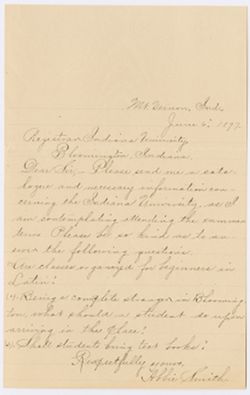 Mt. Vernon, Ind.
June 5, 1897.
Registrar Indiana University,
Bloomington, Indiana.
Dear Sir, - Please send me a cata-
logue and necessary information con-
cerning the Indiana University, as I
am contemplating attending the summer
term. Please be so kind as to an-
swer the following questions.
Are classes organized for beginners in
Latin?
Being a complete stranger in Blooming-
ton, what should a student do upon
arriving in the place?
Shall students bring text books?
Respectfully yours,
Abbie Smith.